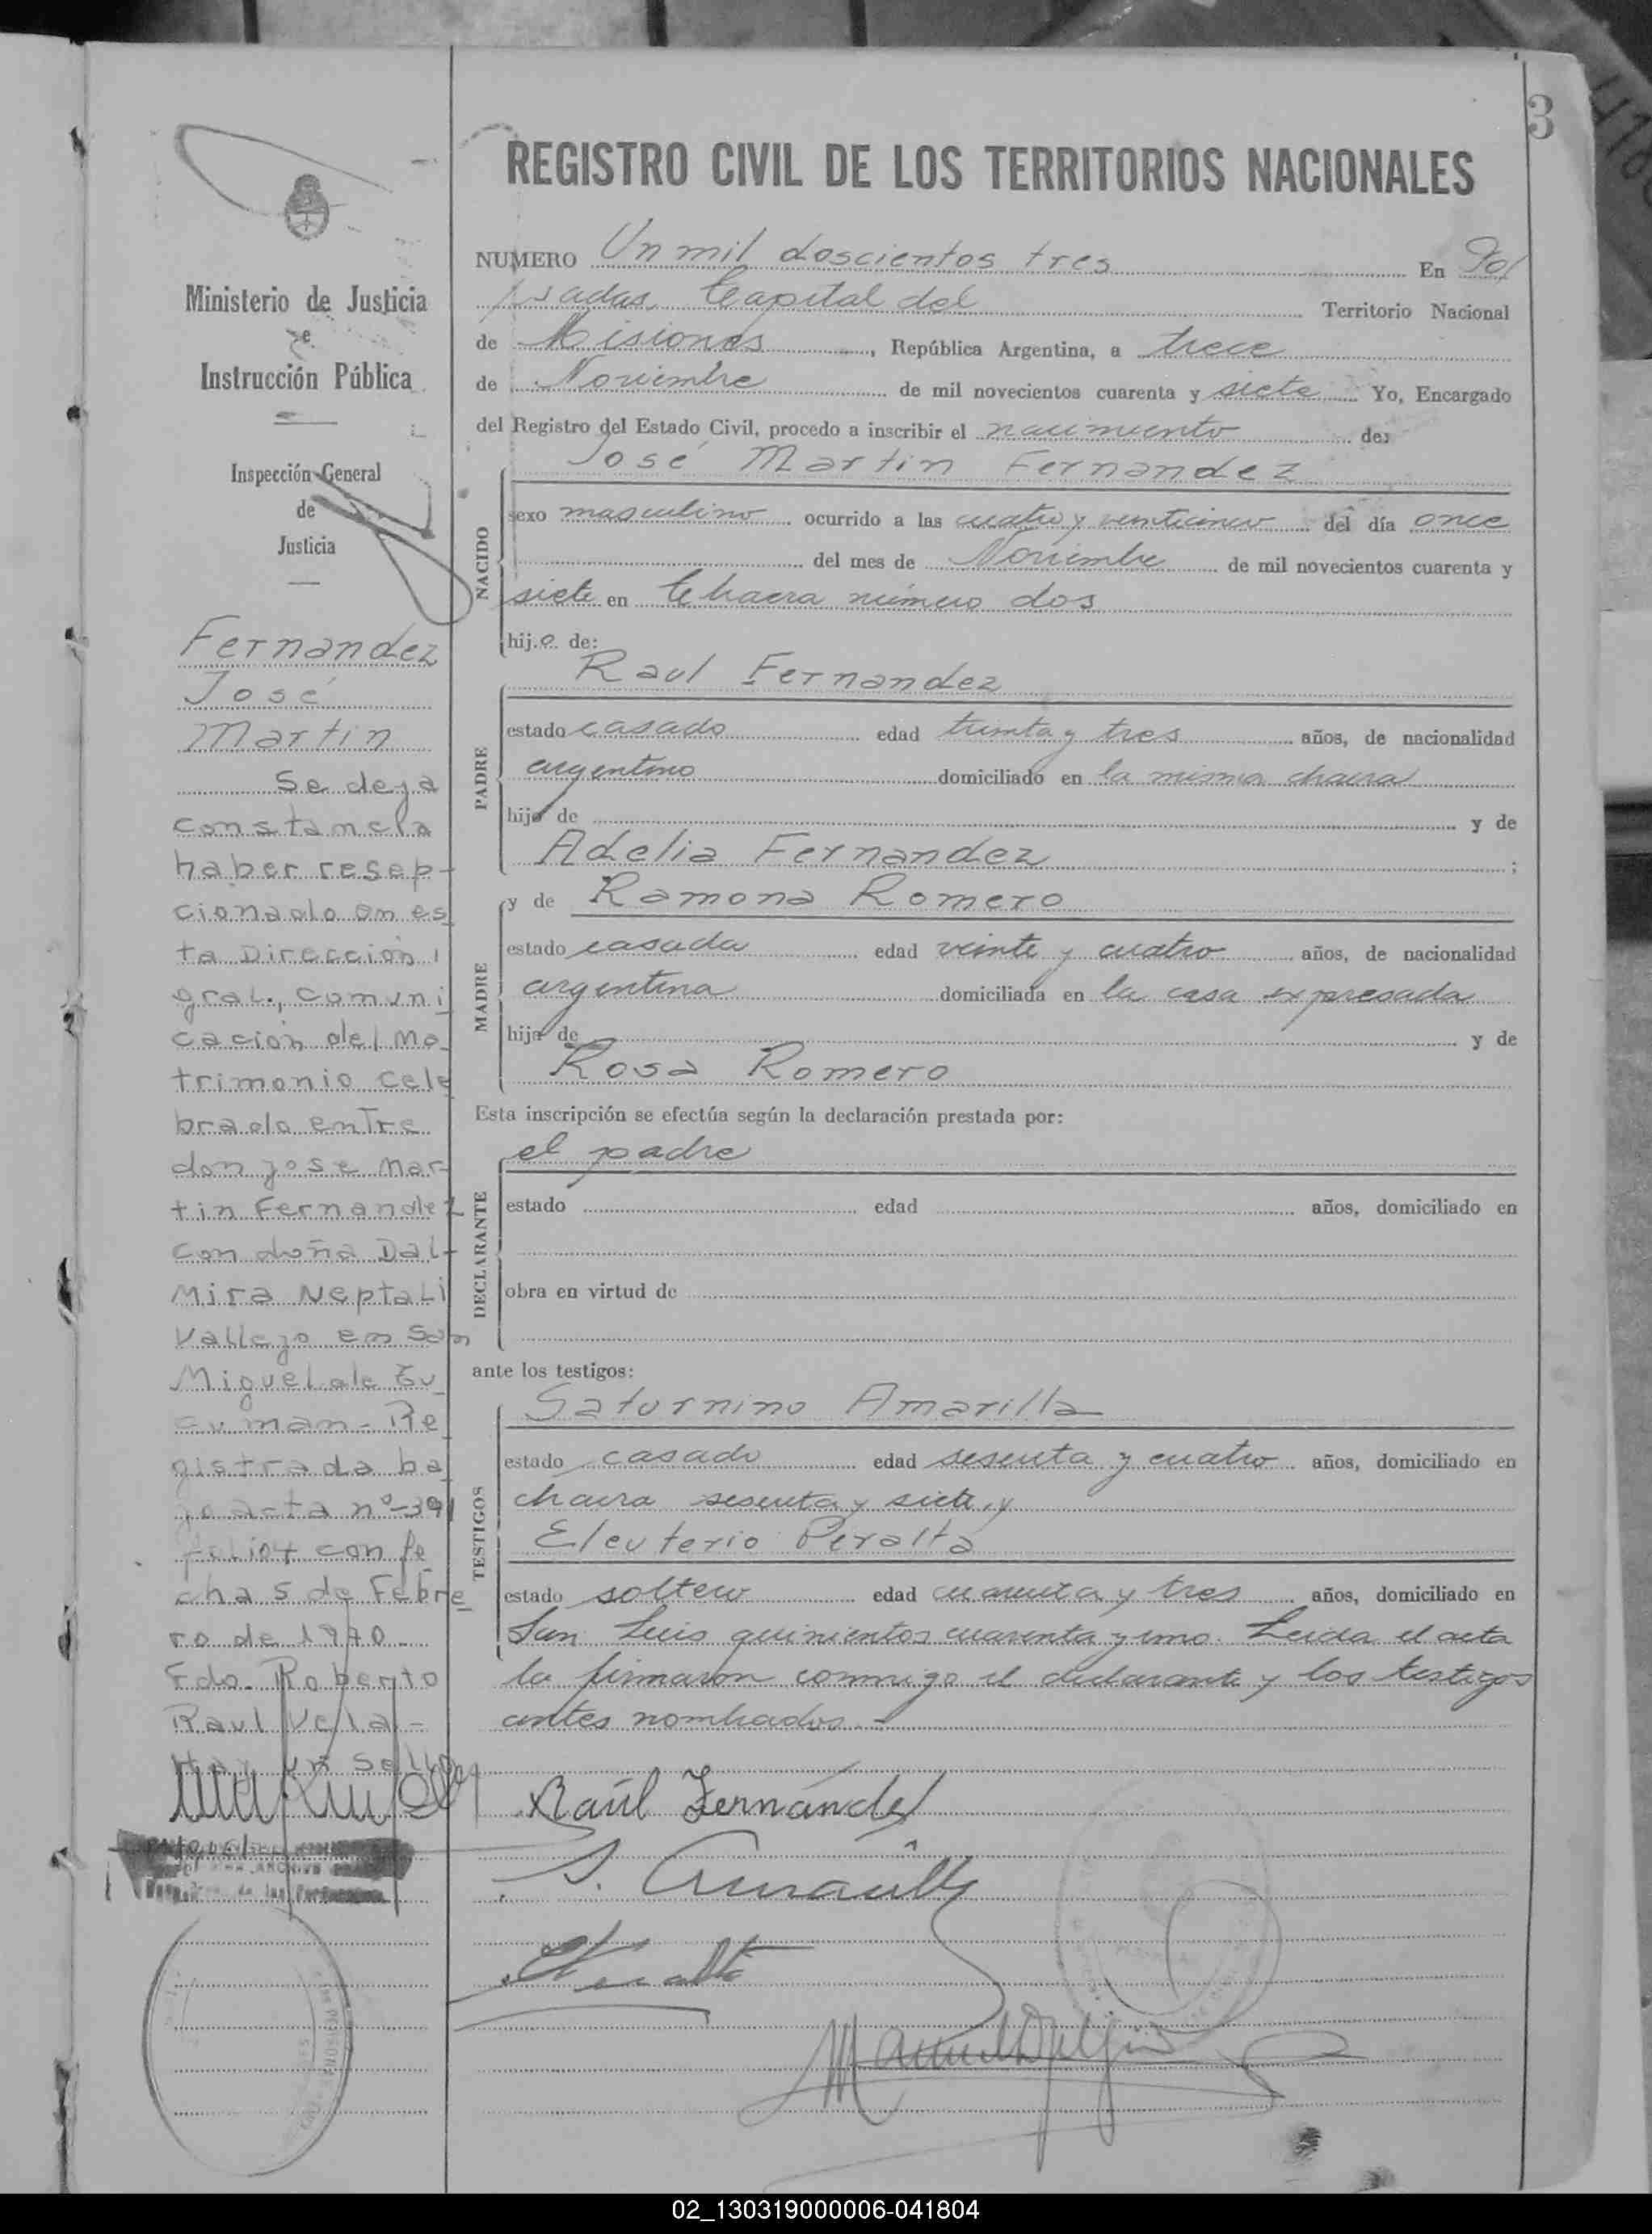 3
REGISTRO CIVIL DE LOS TERRITORIOS NACIONALES
Ministerio de Justicia
e
Instrucción Pública
Inspección General
de
Justicia
Fernandez
José
Martin
Se deja
constancia
haber resep-
cionado en es
ta Dirección
gral., comuni
cación del Ma
trimonio cele
brado entre
don jose Mar-
tin Fernandez
con doña Dal-
Mira Neptali
Vallejo en San
Miguel de Tu
cu man - Re
gistrada ba
jo acta nº-391
folio con fe
cha 5 de Febre
ro de 1970
Fdo. Roberto
Raul Vela -
Hay un sello
NUMERO Un mil doscientos tres En Po/
sadas, Capital del Territorio Nacional
de Misiones, República Argentina, a trece
de Noviembre de mil novecientos cuarenta y siete Yo, Encargado
del Registro del Estado Civil, procedo a inscribir el nacimiento de:
José Martin Fernandez
NACIDO
sexo masculino ocurrido a las cuatro y veinticinco del día once
del mes de Noviembre de mil novecientos cuarenta y
siete en Chacra número dos
hij.o de:
Raul Fernandez
PADRE
estado casado edad treinta y tres años, de nacionalidad
argentino domiciliado en la misma chacra
hijo de y de
Adelia Fernandez ;
y de Ramona Romero
MADRE
estado casada edad veinte y cuatro años, de nacionalidad
argentina domiciliada en la casa expresada
hija de y de
Rosa Romero
Esta inscripción se efectúa según la declaración prestada por:
el padre
DECLARANTE
estado edad años, domiciliado en
obra en virtud de
ante los testigos:
Saturnino Amarilla
TESTIGOS
estado casado edad sesenta y cuatro años, domiciliado en
chacra sesenta y siete, y
Eleuterio Peralta
estado soltero edad cuarenta y tres años, domiciliado en
San Luis quinientos cuarenta y uno. Leida el acta
la firmaron conmigo el declarante y los testigos
antes nombrados. -
Raúl Fernández
S. Amarilla
02_130319000006-041804